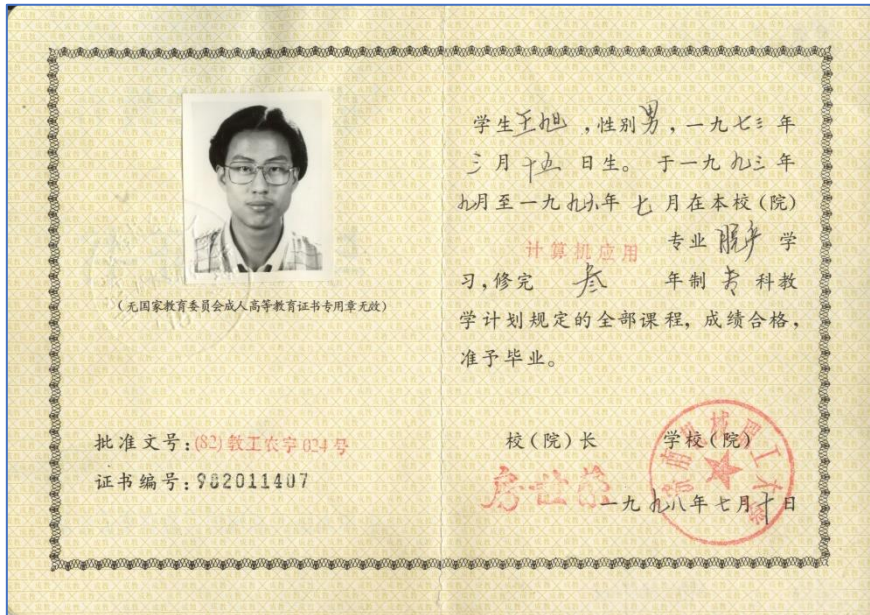 (无国家教育委员会成人高等教育证书专用章无效)
批准文号:(82)教工农字024号
证书编号:982011407
学生王旭,性别男,一九七三年
三月十五日生。于一九九三年
九月至一九九六年七月在本校(院)
计算机应用专业脱产学
习,修完叁年制专科教
学计划规定的全部课程,成绩合格,
准予毕业。
校(院)长 学校(院)
房世荣
一九九八年七月十日